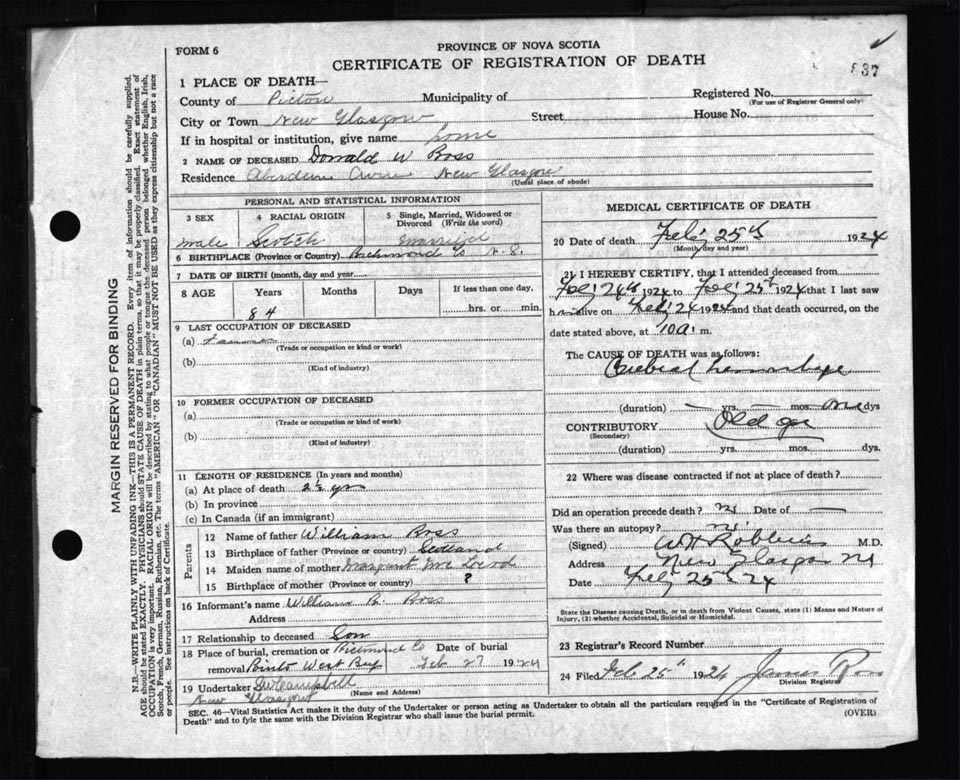 FORM 6
PROVINCE OF NOVA SCOTIA
CERTIFICATE OF REGISTRATION OF DEATH
837
1 PLACE OF DEATH—
County of Pictou Municipality of
Registered No.
(For use of Registrar General only)
City or Town New Glasgow Street House No.
If in hospital or institution, give name home
2 NAME OF DECEASED Donald W Ross
Residence Aberdeen New Glasgow
(Usual place of abode)
PERSONAL AND STATISTICAL INFORMATION
3 SEX
male
4 RACIAL ORIGIN
Scotch
5 Single, Married, Widowed or Divorced (Write the word)
married
6 BIRTHPLACE (Province or Country) Richmond Co N.S.
7 DATE OF BIRTH (month, day and year)
8 AGE Years Months Days If less than one day.
84
hrs. or min.
9 LAST OCCUPATION OF DECEASED
(a)
(Trade or occupation or kind or work)
(b)
(Kind of industry)
10 FORMER OCCUPATION OF DECEASED
(a)
(Trade or occupation or kind of work)
(b)
(Kind of industry)
11 LENGTH OF RESIDENCE (In years and months)
(a) At place of death 2½ yrs
(b) In province
(c) In Canada (if an immigrant)
Parents
12 Name of father William Ross
13 Birthplace of father (Province or country) Scotland
14 Maiden name of mother Margaret Mc
15 Birthplace of mother (Province or country) ?
16 Informant's name William R. Ross
Address
17 Relationship to deceased Son
18 Place of burial, cremation or Richmond Co Date of burial
removal Points West Bay Feb 27 1924
19 Undertaker Campbell
(Name and Address)
New Glasgow
MEDICAL CERTIFICATE OF DEATH
20 Date of death Feb 25th 1924
(Month, day and year)
21 I HEREBY CERTIFY, that I attended deceased from
Feb 24th 1924 to Feb 25th 1924 that I last saw
him alive on Feb 24 1924 and that death occurred, on the
date stated above, at 10 a. m.
The CAUSE OF DEATH was as follows:
Cerebral hemorrhage
(duration) — yrs. — mos. one dys
CONTRIBUTORY Old age
(Secondary)
(duration) yrs. mos. dys.
22 Where was disease contracted if not at place of death?
Did an operation precede death? no Date of —
Was there an autopsy? no
(Signed) W H M.D.
Address New Glasgow NS
Date Feb 25th 24
State the Disease causing Death, or in death from Violent Causes, state (1) Means and Nature of Injury, (2) whether Accidental, Suicidal or Homicidal.
23 Registrar's Record Number
24 Filed Feb 25th 1924 James Ross
Division Registrar
SEC. 46—Vital Statistics Act makes it the duty of the Undertaker or person acting as Undertaker to obtain all the particulars required in the "Certificate of Registration of
Death" and to fyle the same with the Division Registrar who shall issue the burial permit.
(OVER)
MARGIN RESERVED FOR BINDING
N.B.—WRITE PLAINLY WITH UNFADING INK—THIS IS A PERMANENT RECORD. Every item of information should be carefully supplied.
AGE should be stated EXACTLY. PHYSICIANS should STATE CAUSE OF DEATH in plain terms, so that it may be properly classified. Exact statement of
OCCUPATION is very important. RACIAL ORIGIN will be described by stating to what people or tongue the deceased person belonged whether English, Irish,
Scotch, French, German, Russian, Ruthenian, etc. The terms "AMERICAN" OR "CANADIAN" MUST NOT BE USED as they express citizenship but not a race
or people. See instructions on back of Certificate.